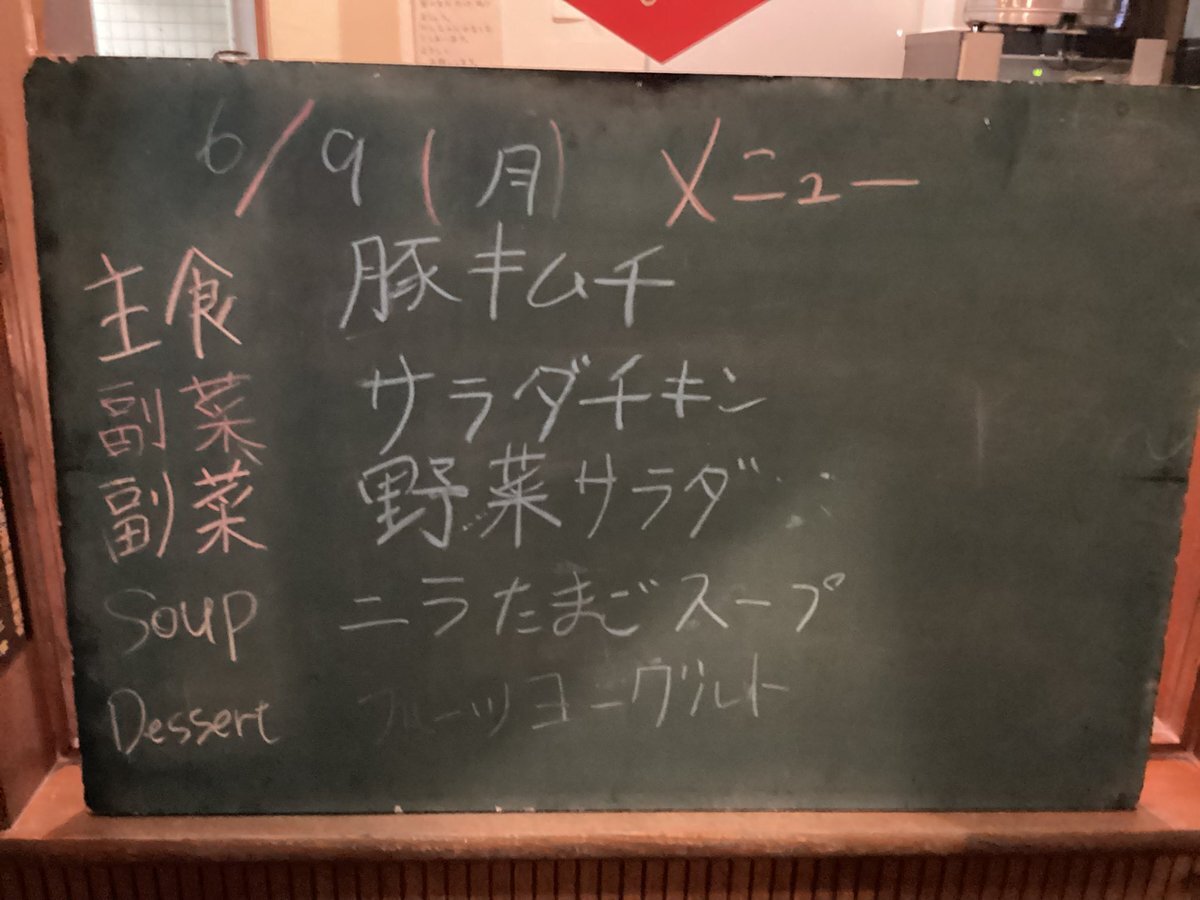 6/9(月) メニュー
主食 豚キムチ
副菜 サラダチキン
副菜 野菜サラダ
Soup ニラたまごスープ
Dessert フルーツヨーグルト